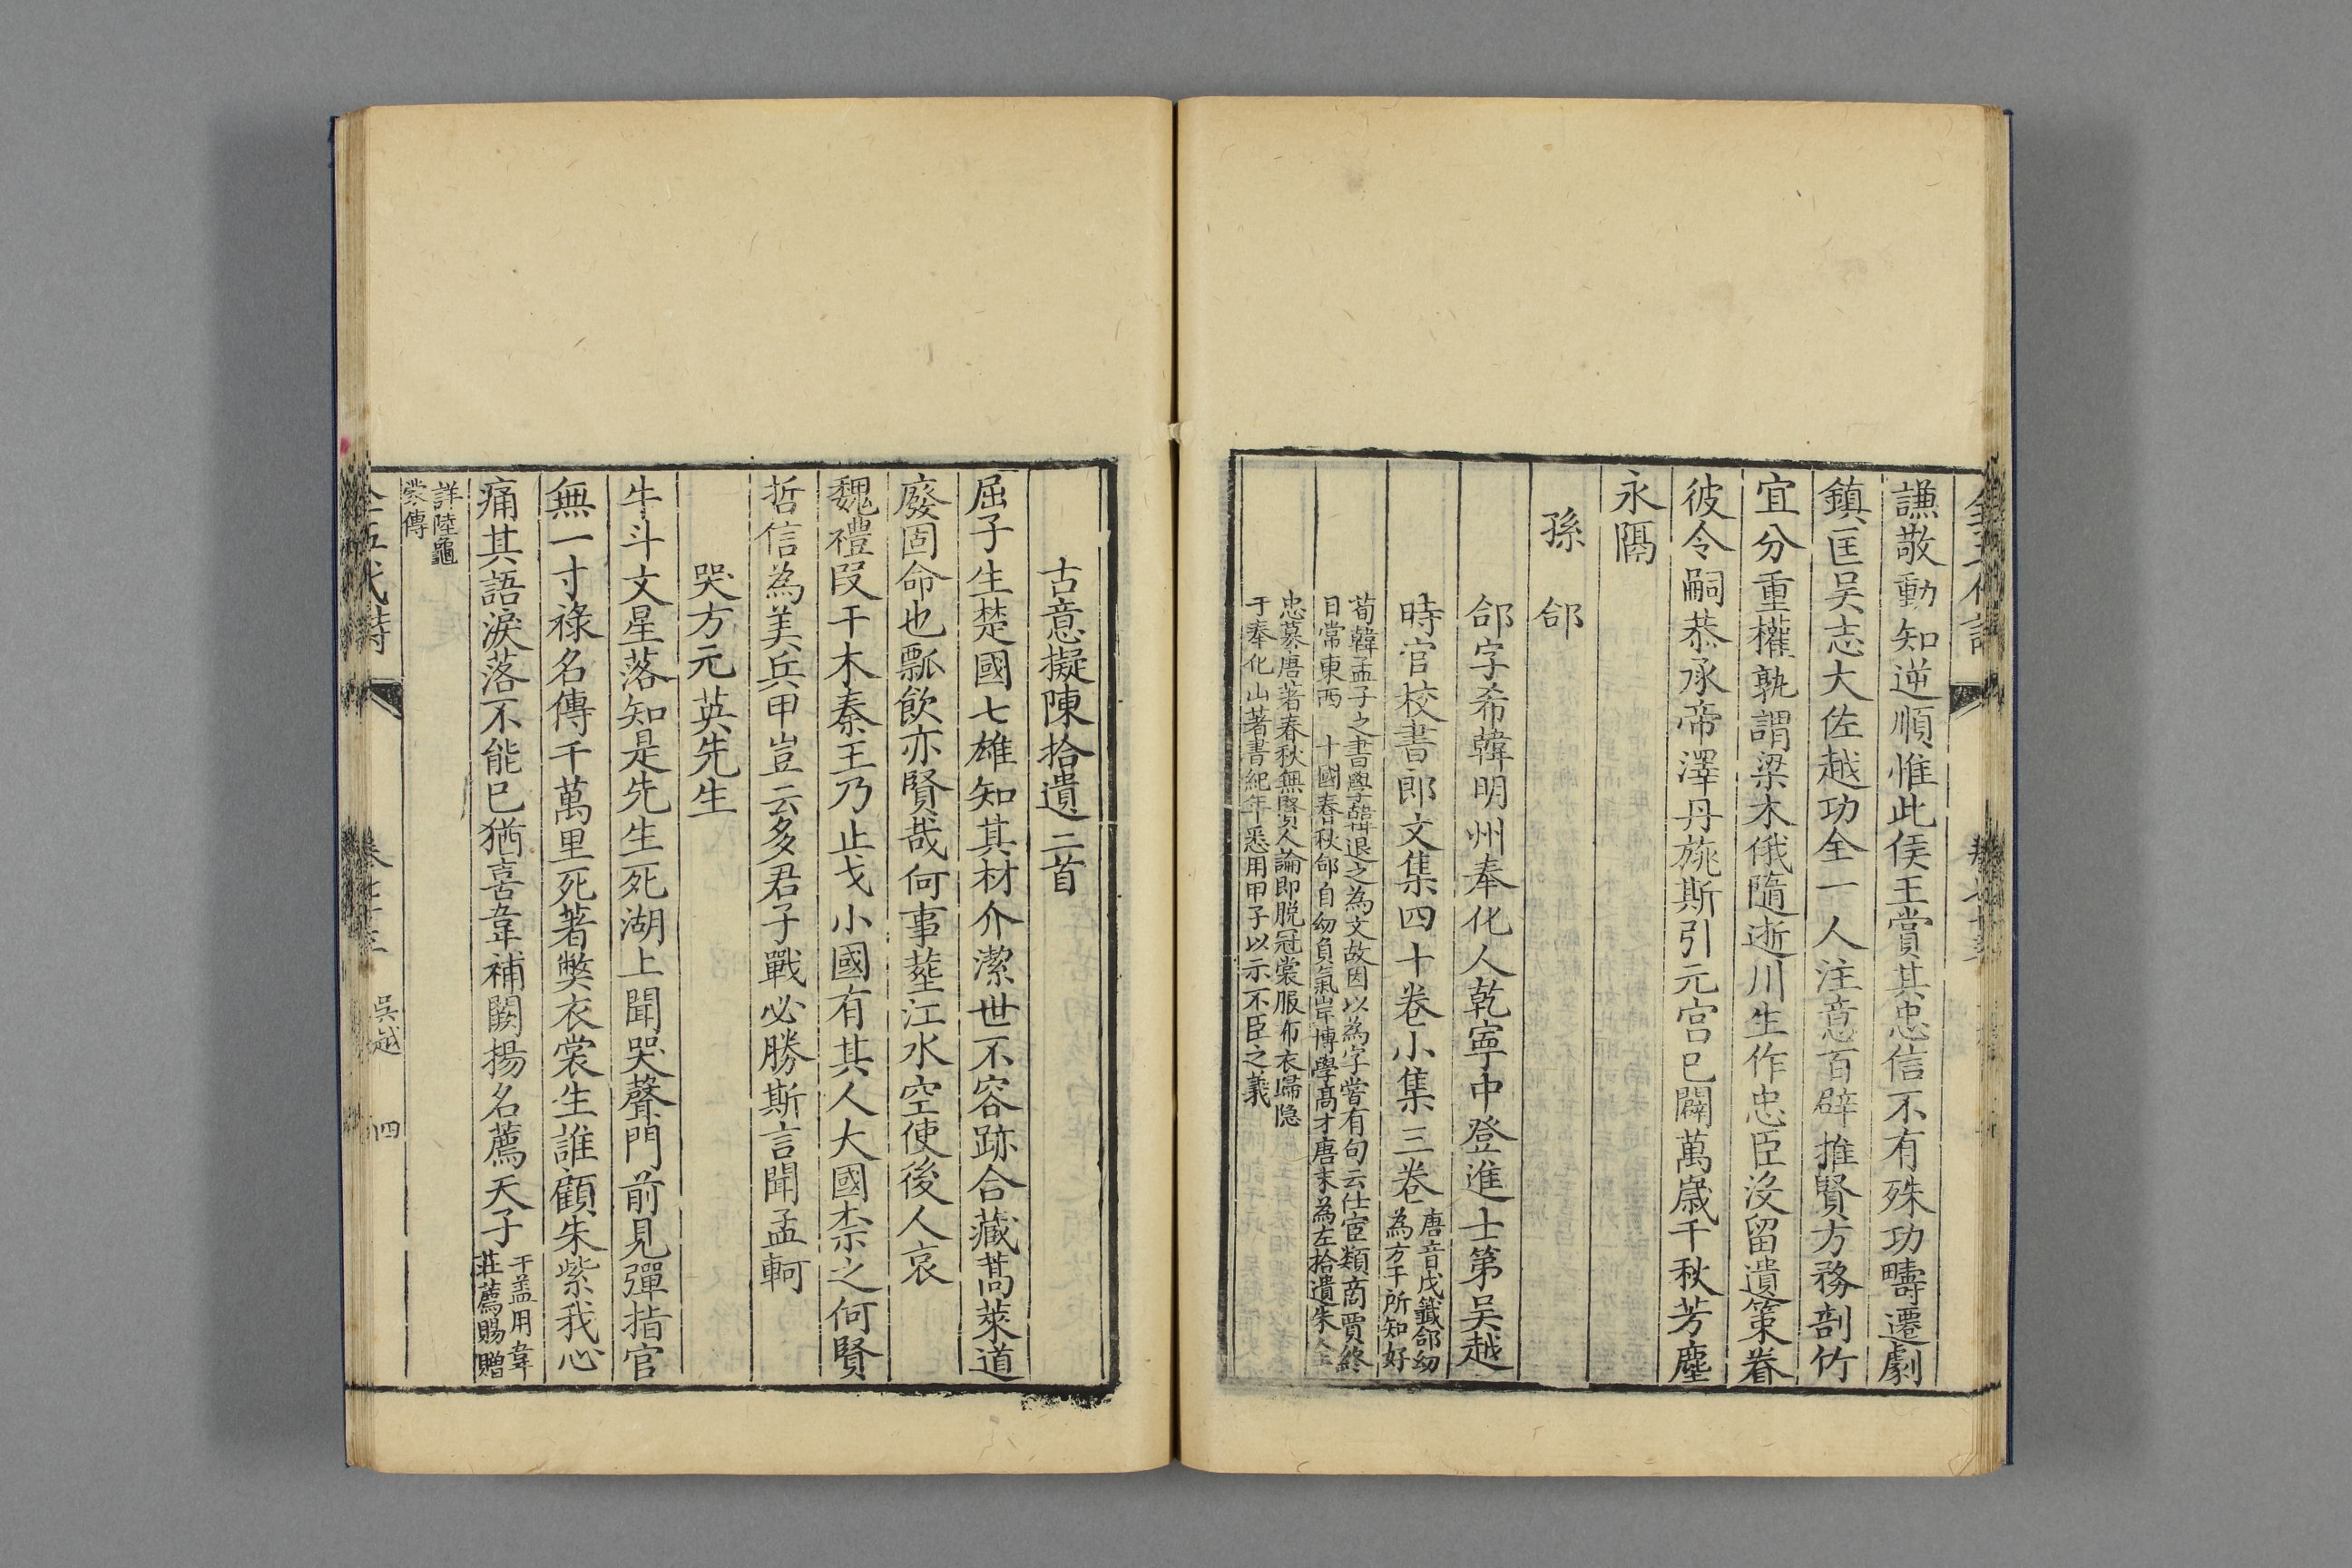 謙敬動知逆順惟此侯王賞其忠信不有殊功疇遷劇
鎮匡吳志大佐越功全一人注意百辟推賢方務剖竹
宜分重權孰謂梁木俄隨逝川生作忠臣沒留遺策眷
彼令嗣恭承帝澤丹旐斯引元宮已闢萬歲千秋芳塵
永隔
孫郃
郃字希韓明州奉化人乾寧中登進士第吳越
時官校書郎文集四十卷小集三卷
唐音戊籖郃幼
為方干所知好
荀韓孟子之書學韓退之為文故因以為字嘗有句云仕宦類商賈終
日常東西 十國春秋郃自幼負氣岸博學高才唐末為左拾遺朱
忠募唐著春秋無賢人論即脱冠裳服布衣歸隐
于奉化山著書紀年悉用甲子以示不臣之義
古意擬陳拾遺二首
屈子生楚國七雄知其材介潔世不容跡合藏蒿萊道
廢固命也瓢飲亦賢哉何事塟江水空使後人哀
魏禮段干木秦王乃止戈小國有其人大國柰之何賢
哲信為美兵甲豈云多君子戰必勝斯言聞孟軻
哭方元英先生
牛斗文星落知是先生死湖上聞哭聲門前見彈指官
無一寸祿名傳千萬里死著弊衣裳生誰顧朱紫我心
痛其語淚落不能已猶喜韋補闕揚名薦天子
干盖用韋
莊薦賜贈
詳陸龜
蒙傳
全五代詩
吳越
四